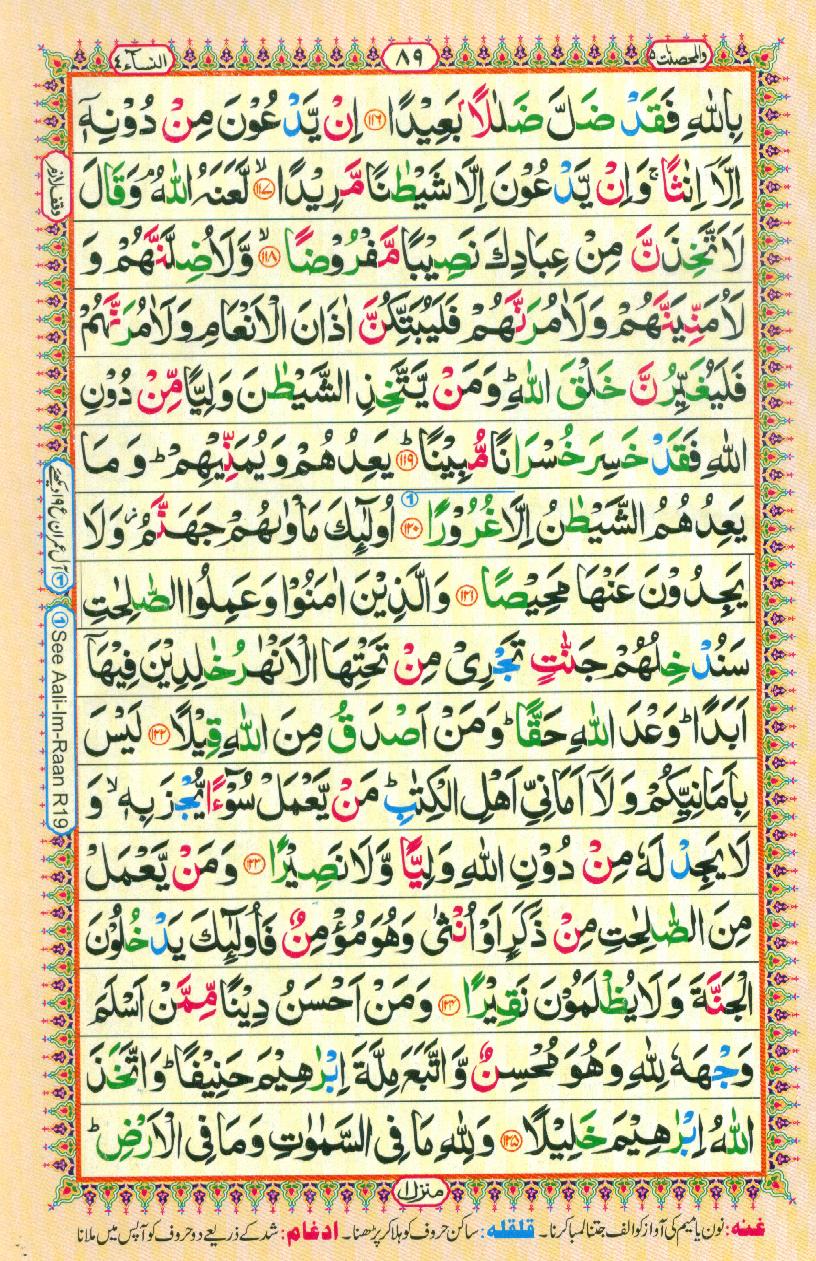 والمحصنت ۵
۸۹
النسآء ۴
بِاللّٰهِ فَقَدْ ضَلَّ ضَلٰلًۢا بَعِيْدًا ﴿۱۱۶﴾ اِنْ يَّدْعُوْنَ مِنْ دُوْنِهٖۤ
اِلَّاۤ اِنٰثًا ۚ وَاِنْ يَّدْعُوْنَ اِلَّا شَيْطٰنًا مَّرِيْدًا ۙ﴿۱۱۷﴾ لَّعَنَهُ اللّٰهُ ۘ وَقَالَ
لَاَتَّخِذَنَّ مِنْ عِبَادِكَ نَصِيْبًا مَّفْرُوْضًا ۙ﴿۱۱۸﴾ وَّلَاُضِلَّنَّهُمْ وَ
لَاُمَنِّيَنَّهُمْ وَلَاٰمُرَنَّهُمْ فَلَيُبَتِّكُنَّ اٰذَانَ الْاَنْعَامِ وَلَاٰمُرَنَّهُمْ
فَلَيُغَيِّرُنَّ خَلْقَ اللّٰهِ ؕ وَمَنْ يَّتَّخِذِ الشَّيْطٰنَ وَلِيًّا مِّنْ دُوْنِ
اللّٰهِ فَقَدْ خَسِرَ خُسْرَانًا مُّبِيْنًا ؕ﴿۱۱۹﴾ يَعِدُهُمْ وَيُمَنِّيْهِمْ ؕ وَمَا
يَعِدُهُمُ الشَّيْطٰنُ اِلَّا غُرُوْرًا ﴿۱۲۰﴾ اُولٰٓئِكَ مَاْوٰىهُمْ جَهَنَّمُ ؗ وَلَا
يَجِدُوْنَ عَنْهَا مَحِيْصًا ﴿۱۲۱﴾ وَالَّذِيْنَ اٰمَنُوْا وَعَمِلُوا الصّٰلِحٰتِ
سَنُدْخِلُهُمْ جَنّٰتٍ تَجْرِىْ مِنْ تَحْتِهَا الْاَنْهٰرُ خٰلِدِيْنَ فِيْهَاۤ
اَبَدًا ؕ وَعْدَ اللّٰهِ حَقًّا ؕ وَمَنْ اَصْدَقُ مِنَ اللّٰهِ قِيْلًا ﴿۱۲۲﴾ لَيْسَ
بِاَمَانِيِّكُمْ وَلَاۤ اَمَانِىِّ اَهْلِ الْكِتٰبِ ؕ مَنْ يَّعْمَلْ سُوْٓءًا يُّجْزَ بِهٖ ۙ وَ
لَا يَجِدْ لَهٗ مِنْ دُوْنِ اللّٰهِ وَلِيًّا وَّلَا نَصِيْرًا ﴿۱۲۳﴾ وَمَنْ يَّعْمَلْ
مِنَ الصّٰلِحٰتِ مِنْ ذَكَرٍ اَوْ اُنْثٰى وَهُوَ مُؤْمِنٌ فَاُولٰٓئِكَ يَدْخُلُوْنَ
الْجَنَّةَ وَلَا يُظْلَمُوْنَ نَقِيْرًا ﴿۱۲۴﴾ وَمَنْ اَحْسَنُ دِيْنًا مِّمَّنْ اَسْلَمَ
وَجْهَهٗ لِلّٰهِ وَهُوَ مُحْسِنٌ وَّاتَّبَعَ مِلَّةَ اِبْرٰهِيْمَ حَنِيْفًا ؕ وَاتَّخَذَ
اللّٰهُ اِبْرٰهِيْمَ خَلِيْلًا ﴿۱۲۵﴾ وَلِلّٰهِ مَا فِى السَّمٰوٰتِ وَمَا فِى الْاَرْضِ ؕ
وقف لازم
① آل عمران ع ۱۹ دیکھئے
① See Aali-Im-Raan R19
منزل ۱
غنہ: نون یا میم کی آواز کو الف جتنا لمبا کرنا۔ قلقلہ: ساکن حروف کو ہلا کر پڑھنا۔ ادغام: شد کے ذریعے دو حروف کو آپس میں ملانا